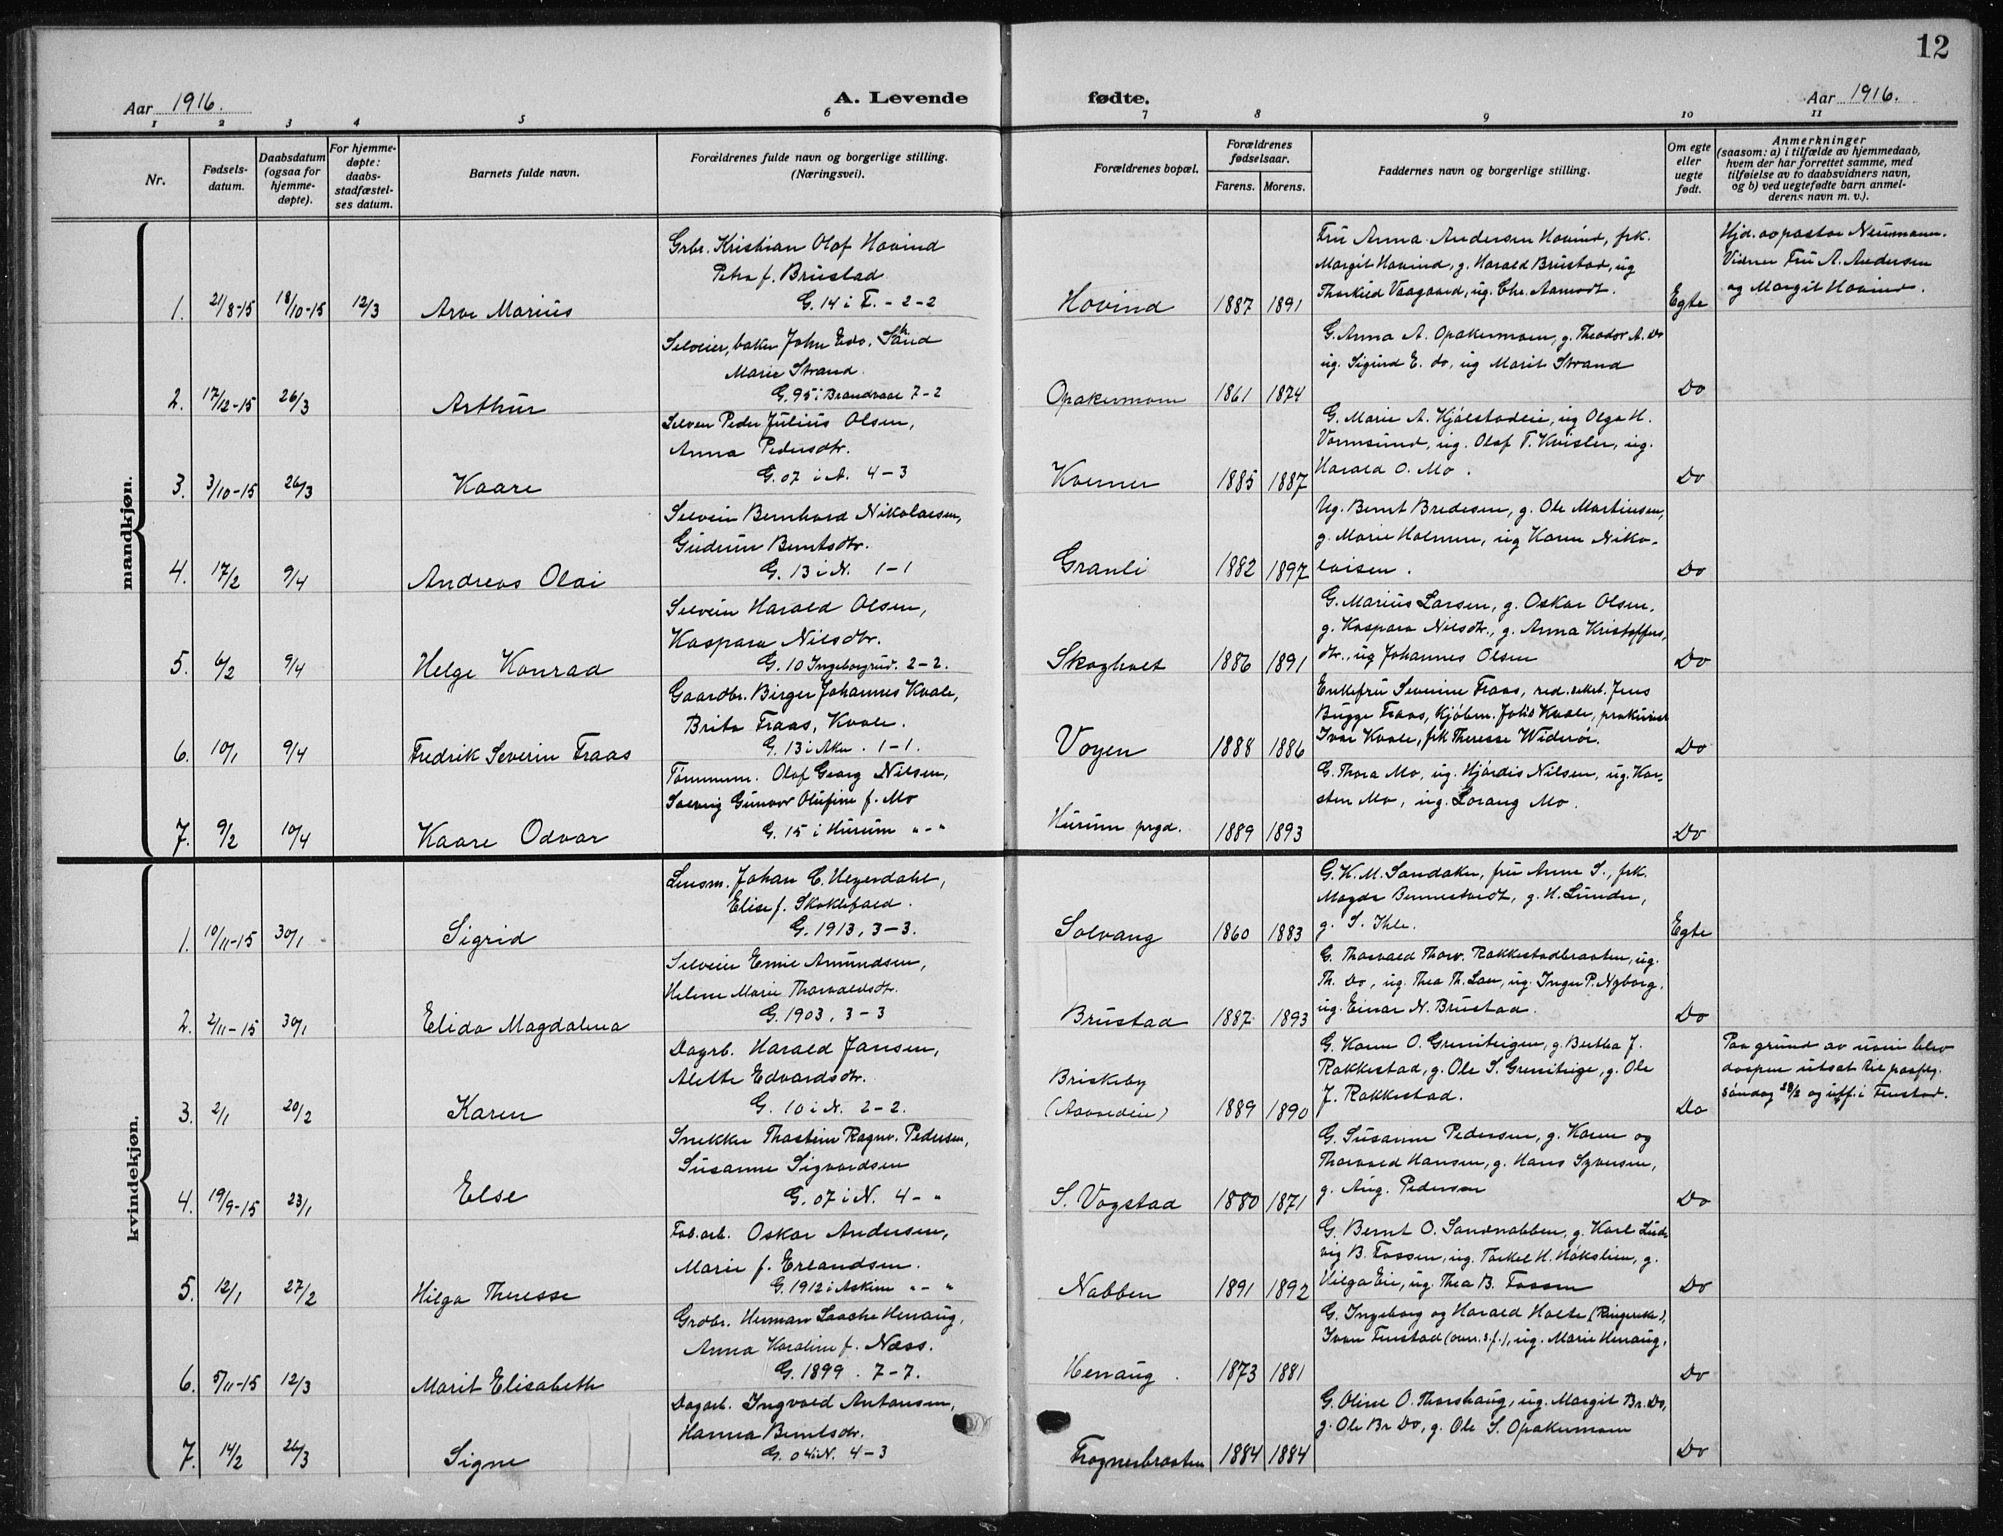 12
Aar 1916.
A. Levende fødte.
Aar 1916.
1 2 3 4 5 6 7 8 9 10 11
Nr.
Fødsels-
datum.
Daabsdatum
(ogsaa for
hjemme-
døpte).
For hjemme-
døpte:
daabs-
stadfæstel-
ses datum.
Barnets fulde navn.
Forældrenes fulde navn og borgerlige stilling.
(Næringsvei).
Forældrenes bopæl.
Forældrenes
fødselsaar.
Farens. Morens.
Faddernes navn og borgerlige stilling.
Om egte
eller
uegte
født.
Anmerkninger
(saasom: a) i tilfælde av hjemmedaab,
hvem der har forrettet samme, med
tilføielse av to daabsvidners navn,
og b) ved uegtefødte barn anmel-
derens navn m. v.).
maandkjøn.
1. 21/8-15 18/10-15 12/3 Arve Marius
Grbr. Kristian Olaf Hovind
Petra f. Brustad
G. 14 i F. - 2-2
Hovind 1887 1891
Fru Anna Andersen Hovind, frk.
Margit Hovind, g. Harald Brustad, ug
Thorkild Vaagaard, ug. Chr. Aamodt.
Egte
Hjd. av pastor Neumann.
Vidner Fru A. Andersen
og Margit Hovind.
2. 17/12-15 26/3 Arthur
Selveier, baker John Edv. Sand
Marie Strand.
G. 95 i Brandvaal 7-2
Opakermoen 1861 1874
G. Anna A. Opakermoen, g. Theodor A. Do
ug. Sigurd E. do, ug Marit Strand
Do
3. 3/10-15 26/3 Kaare
Selveier Peder Julius Olsen,
Anna Pedersdtr.
G. 07 i A. 4-3
Kverner 1885 1887
G. Marie A. Hjølstadeie, ug Olga H.
Vormsund, ug. Olaf T. Kvisler, ug.
Harald O. Mo.
Do
4. 17/2 9/4 Andreas Olai
Selveier Bernhard Nikolaisen,
Gudrun Berntsdtr.
G. 13 i N. 1-1
Granli 1882 1897
Ug. Bernt Bredesen, g. Ole Martinsen,
g. Marie Holmen, ug Karen Niko-
laisen.
Do
5. 6/2 9/4 Helge Konrad
Selveier Harald Olsen,
Kaspara Nilsdtr.
G. 10 Ingeborgrud. 2-2.
Skogholt 1886 1891
G. Marius Larsen, g. Oskar Olsen.
g. Kaspara Nilsdtr., g. Anna Kristoffers,
dtr., ug Johannes Olsen
Do
6. 10/1 9/4 Fredrik Severin Fraas
Gaardbr. Birger Johannes Kvale,
Brita Fraas, Kvale.
G. 13 i Aker. 1-1.
Voyen 1888 1886
Enkefru Severine Fraas, red. sekret. Jens
Bugge Fraas, Kjøbm. Johs Kvale, prokurist
Ivar Kvale, frk Theresse Widerøe.
Do
7. 9/2 10/4 Kaare Odvar
Tømmerm. Olaf Georg Nilsen,
Solveig Gunvor Olufine f. Mo
G. 15 i Hurum "-"
Hurum prgd. 1889 1893
G. Thora Mo, ug. Hjørdis Nilsen, ug. Kar-
sten Mo, ug. Lorang Mo.
Do
kvindekjøn.
1. 10/11-15 30/1 Sigrid
Lensm. Johan C. Hegerdahl,
Elise f. Skoklefald.
G. 1913, 3-3.
Solvang 1860 1883
G. K. M. Sandaker, fru Anna S., frk.
Magda Bennestvedt, g. H. Lunder,
g. S. Ihle.
Egte
2. 2/11-15 30/1 Elida Magdalena
Selveier Emil Amundsen,
Helene Marie Thorvaldsdtr.
G. 1903, 3-3
Brustad 1887 1893
G. Thorvald Thorv. Rakkestadbraaten, ug.
Th. Do, ug. Thea Th. Lau, ug. Inger P. Nyborg,
ug. Einar N. Brustad.
Do
3. 2/1 20/2 Karen
Dagrb. Harald Jansen,
Alette Edvardsdtr.
G. 10 i N. 2-2.
Briskeby
(Aavoldeie) 1889 1890
G. Karen O. Grenistigen, g. Bertha J.
Rakkestad, g. Ole S. Grenistige, g. Ole
J. Rakkestad.
Do
Paa grund av uvei blev
daapen utsat til paaflg.
søndag 28/2 og utf. i Finstad.
4. 19/9-15 23/1 Else
Snekker Thorstein Ragnv. Pedersen,
Susanne Sigvardsen
G. 07 i N. 4-"
S. Vogstad 1880 1871
G. Susanne Pedersen, g. Karen og
Thorvald Hansen, g. Hans Syversen,
g. Aug. Pedersen
Do
5. 12/1 27/2 Hilga Theresse
Fab.arb. Oskar Andersen,
Marie f. Erlandsen.
G. 1912 i Askim "-"
Nabben 1891 1892
G. Bernt O. Sandnabben, g. Karl Lud-
vig B. Fossen, ug. Torkel H. Høkslien, g.
Hilga Eie, ug. Thea B. Fossen
Do
6. 5/11-15 12/3 Marit Elisabeth
Grdbr. Herman Laache Henaug,
Anna Karoline f. Næss.
G. 1899. 7-7.
Henaug. 1873 1881
G. Ingeborg og Harald Holte (Ringerike),
Iver Finstad (overs. s.f.), ug. Marie Henaug,
Do
7. 14/2 26/3 Signe
Dagarb. Ingvald Antonsen,
Hanna Berntsdtr.
G. 04 i N. 4-3
Frognerbraaten 1884 1884
G. Oline O. Thorshaug, ug. Margit Br. Do,
g. Ole Br Do, g. Ole S. Opakermoen
Do